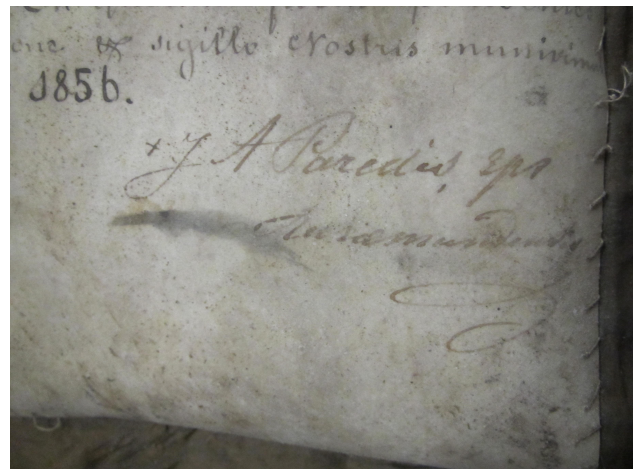 & sigillo Nostris munivim
1856.
+ J A Paredis, Eps
Ruraemundensis